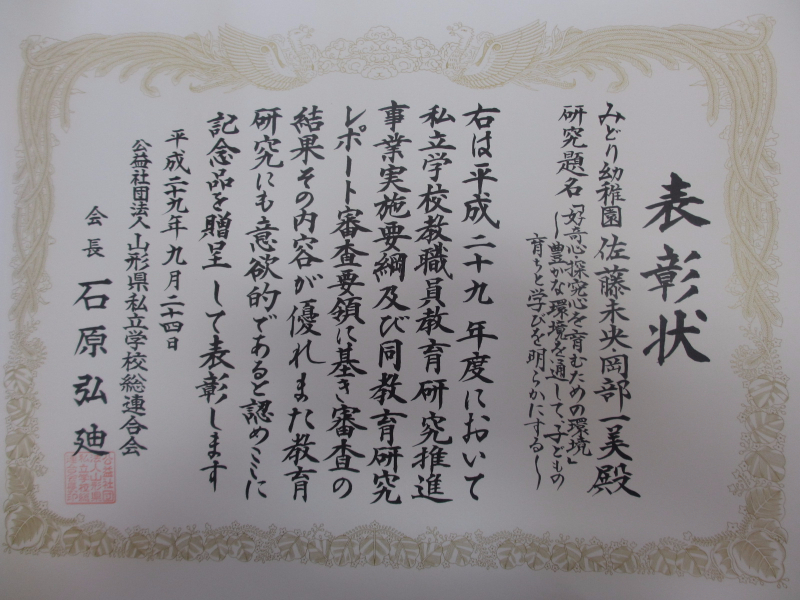 表彰状
みどり幼稚園 佐藤未央・岡部一美殿
研究題名「好奇心・探究心を育むための環境」
〜豊かな環境を通して、子どもの
育ちと学びを明らかにする〜
右は平成二十九年度において
私立学校教職員教育研究推進
事業実施要綱及び同教育研究
レポート審査要領に基き審査の
結果その内容が優れまた教育
研究にも意欲的であると認めここに
記念品を贈呈して表彰します
平成二十九年九月二十四日
公益社団法人山形県私立学校総連合会
会長 石原弘廸